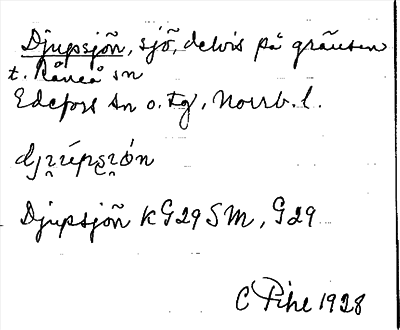 Djupsjön, sjö, delvis på gränsen
t. Råneå sn
Edefors sn o. tg, Norrb. l.
Djupsjön KG29SM, G29
C Pihl 1928